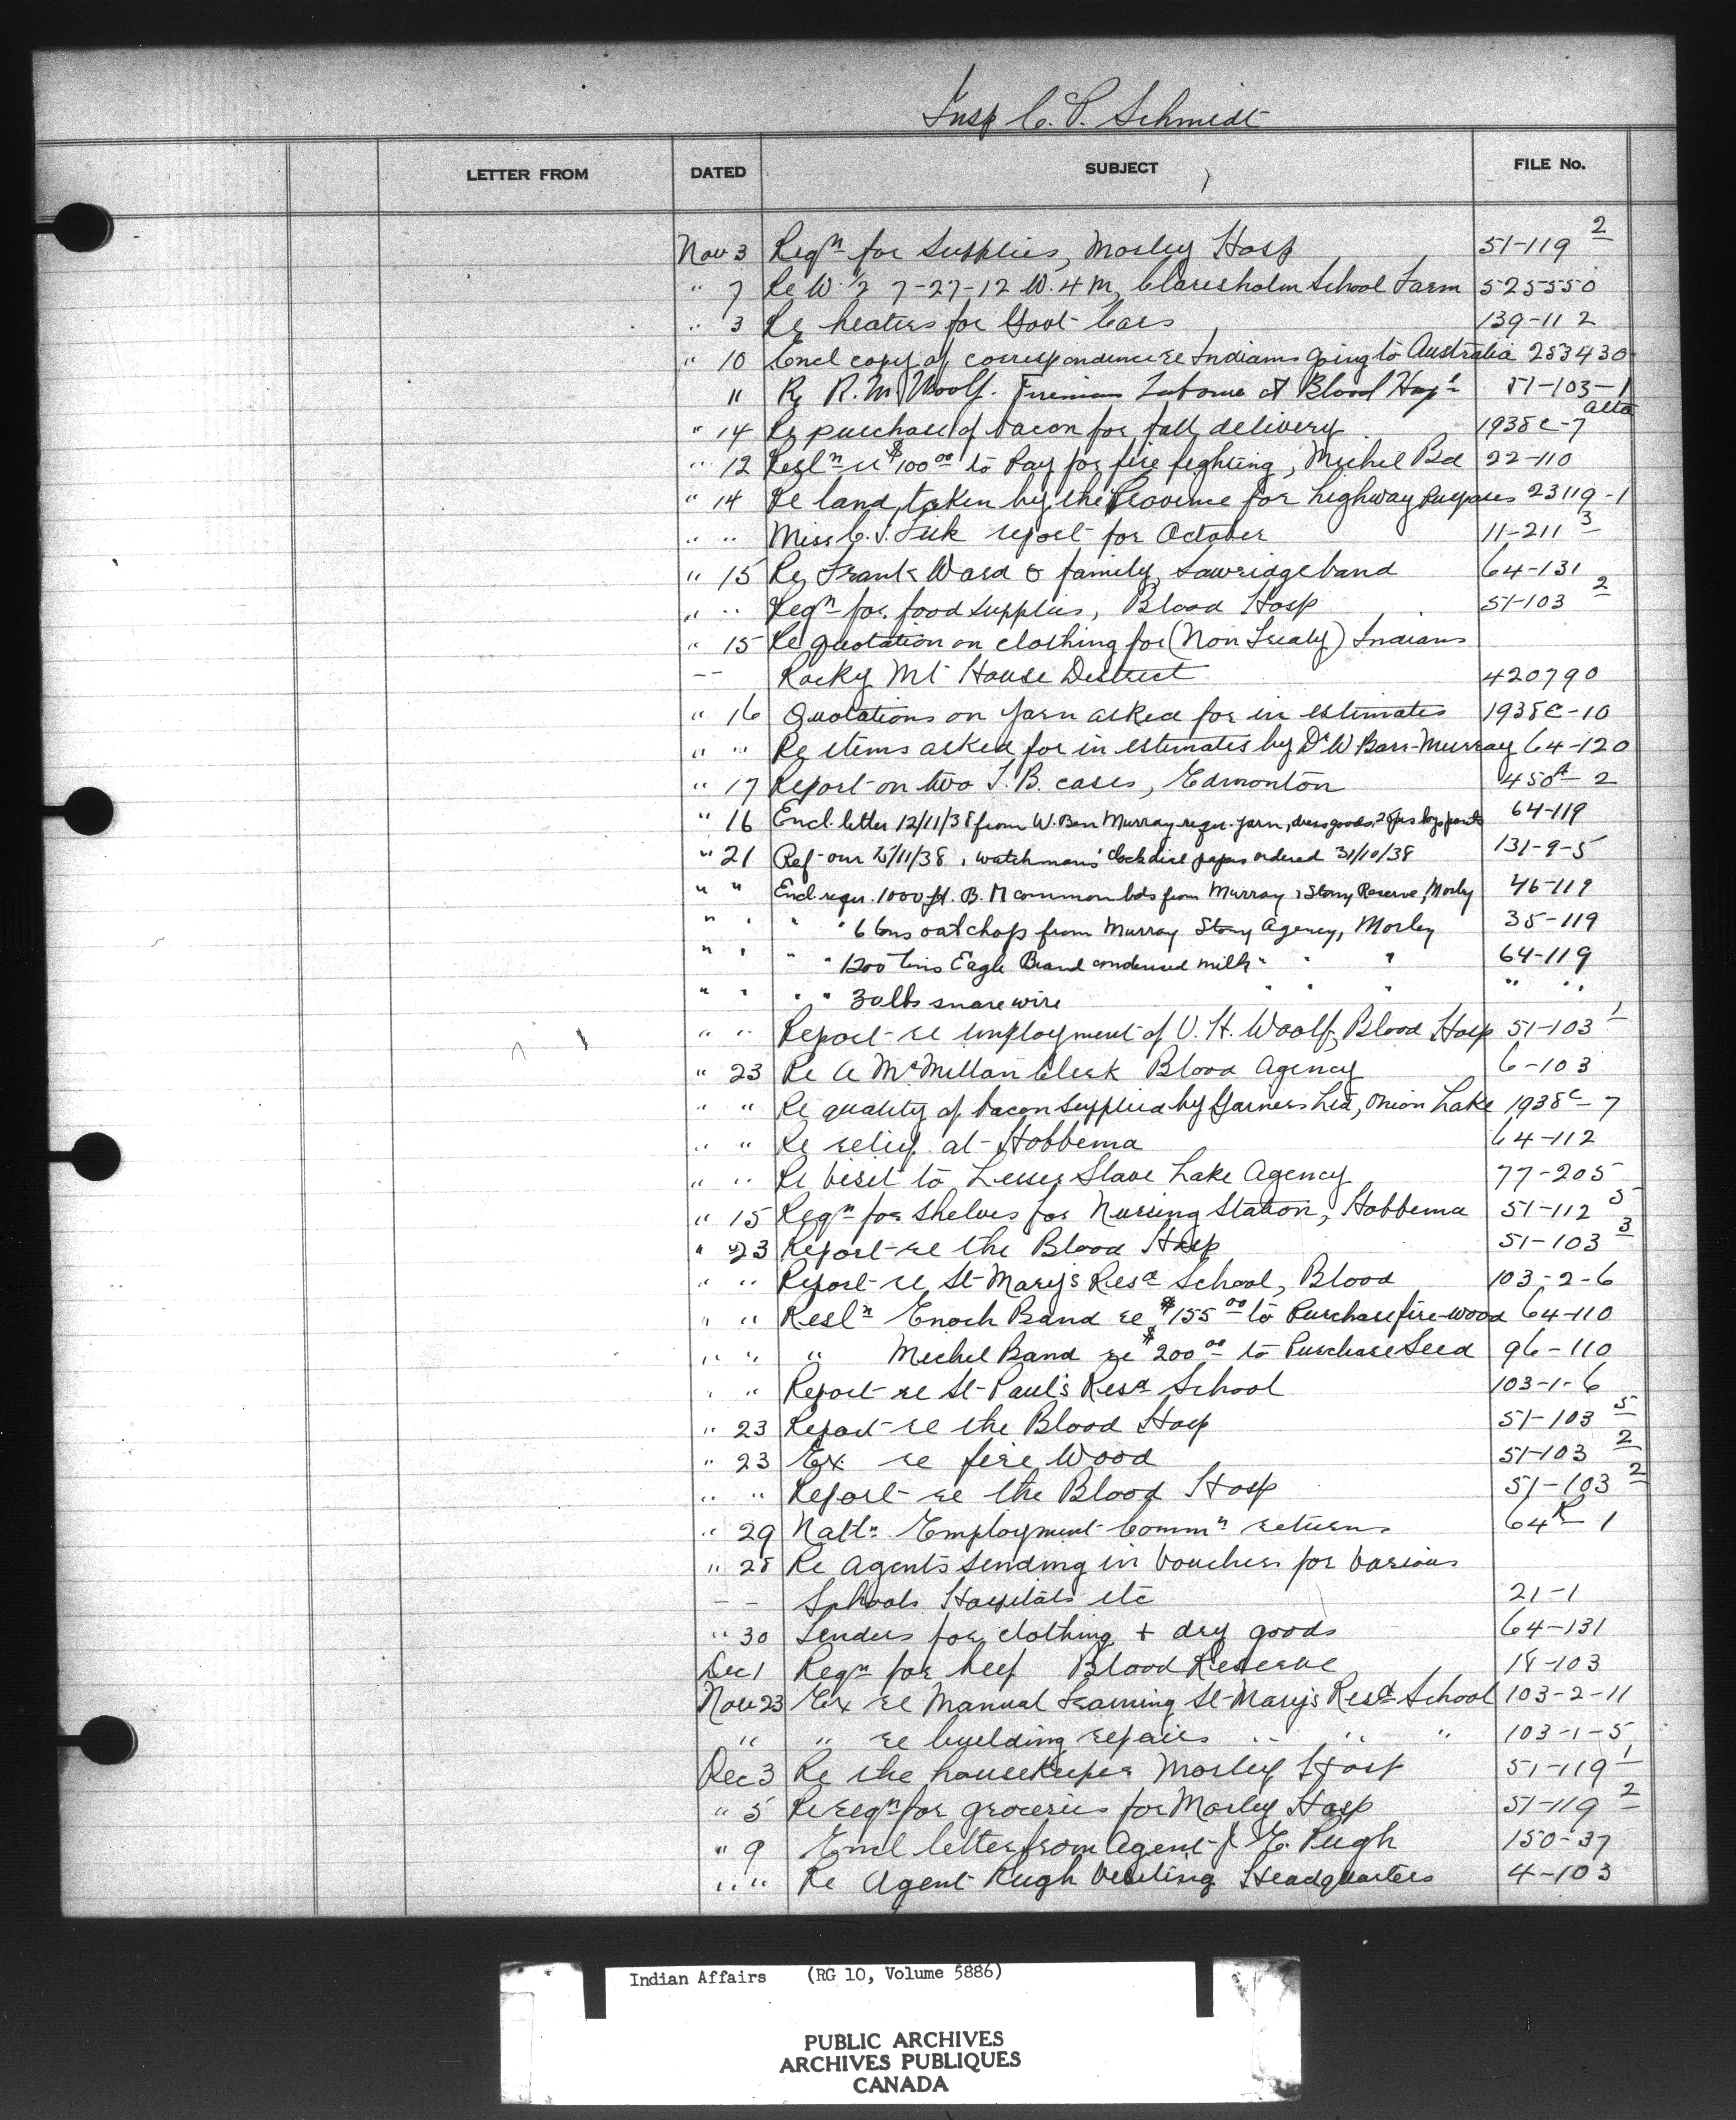 Insp C. P. Schmidt
LETTER FROM DATED SUBJECT FILE No.
Nov 3 Reqn for Supplies, Morley Hosp 51-119 2
" 7 Re W. ½ 7-27-12 W. 4 M, Claresholm School Farm 525550
" 3 Re heaters for Govt Cars 139-112
" 10 Encl copy of correspondence re Indians going to Australia 253430
11 Re R. M. Woolf. Fireman Labourer at Blood Hosp'l 51-103-1
" 14 Re purchase of bacon for fall delivery 1938C-7 alta
" 12 Resln re $100 00 to Pay for fire fighting, Michel Bd 22-110
" 14 Re land taken by the Province for highway Purposes 23119-1
" " Miss C. J. report for October 11-211 3
" 15 Re Frank Ward & family, Sawridge band 64-131
" " Reqn for food supplies, Blood Hosp 51-103 2
" 15 Re quotation on clothing for (Non Treaty) Indians
-- Rocky Mt House District 420790
" 16 Quotations on yarn asked for in estimates 1938C-10
" " Re items asked for in estimates by Dr W Barr-Murray 64-120
" 17 Report on two T.B. cases, Edmonton 450A-2
" 16 Encl. letter 12/11/38 from W. Ben Murray requ. yarn, dress goods, 2 prs boys pants 64-119
" 21 Ref- our 15/11/38, watchmans' clock dial papers ordered 31/10/38 131-9-5
" " Encl requ. 1000 ft. B. M common bds from Murray, Stony Reserve, Morley 46-119
" " " " 6 tons oat chops from Murray Stony Agency, Morley 35-119
" " " " 1200 tins Eagle Brand condensed milk " " " 64-119
" " " " 30 lbs snare wire " " " " "
" " Report re employment of V. H. Woolf, Blood Hosp 51-103 1
" 23 Re A McMillan Clerk Blood Agency 6-103
" " Re quality of bacon supplied by Gainers Ltd, Onion Lake 1938C-7
" " Re relief at Hobbema 64-112
" " Re visit to Lesser Slave Lake Agency 77-205
" 15 Reqn for Shelves for Nursing Station, Hobbema 51-112 5
" 23 Report re the Blood Hosp 51-103 3
" " Report re St Mary's Resd School, Blood 103-2-6
" " Resln Enoch Band re $155 00 to Purchase fire-wood 64-110
" " " Michel Band re $200 00 to Purchase Seed 96-110
" " Report re St Paul's Resd School 103-1-6
" 23 Report re the Blood Hosp 51-103 5
" 23 Ex re fire Wood 51-103 2
" " Report re the Blood Hosp 51-103 2
" 29 Natln Employment Commn returns 64R 1
" 28 Re agents sending in vouchers for various
-- Schools Hospitals etc 21-1
" 30 Tenders for clothing + dry goods 64-131
Dec 1 Reqn for beef Blood Reserve 18-103
Nov 23 Ex re Manual Training St Mary's Resd School 103-2-11
" " re building repairs " " " 103-1-5
Dec 3 Re the housekeeper Morley Hosp 51-119 1
" 5 Re reqn for groceries for Morley Hosp 51-119 2
" 9 Encl letter from Agent J. E. Pugh 150-37
" " Re Agent Pugh visiting Headquarters 4-103
Indian Affairs (RG 10, Volume 5886)
PUBLIC ARCHIVES
ARCHIVES PUBLIQUES
CANADA